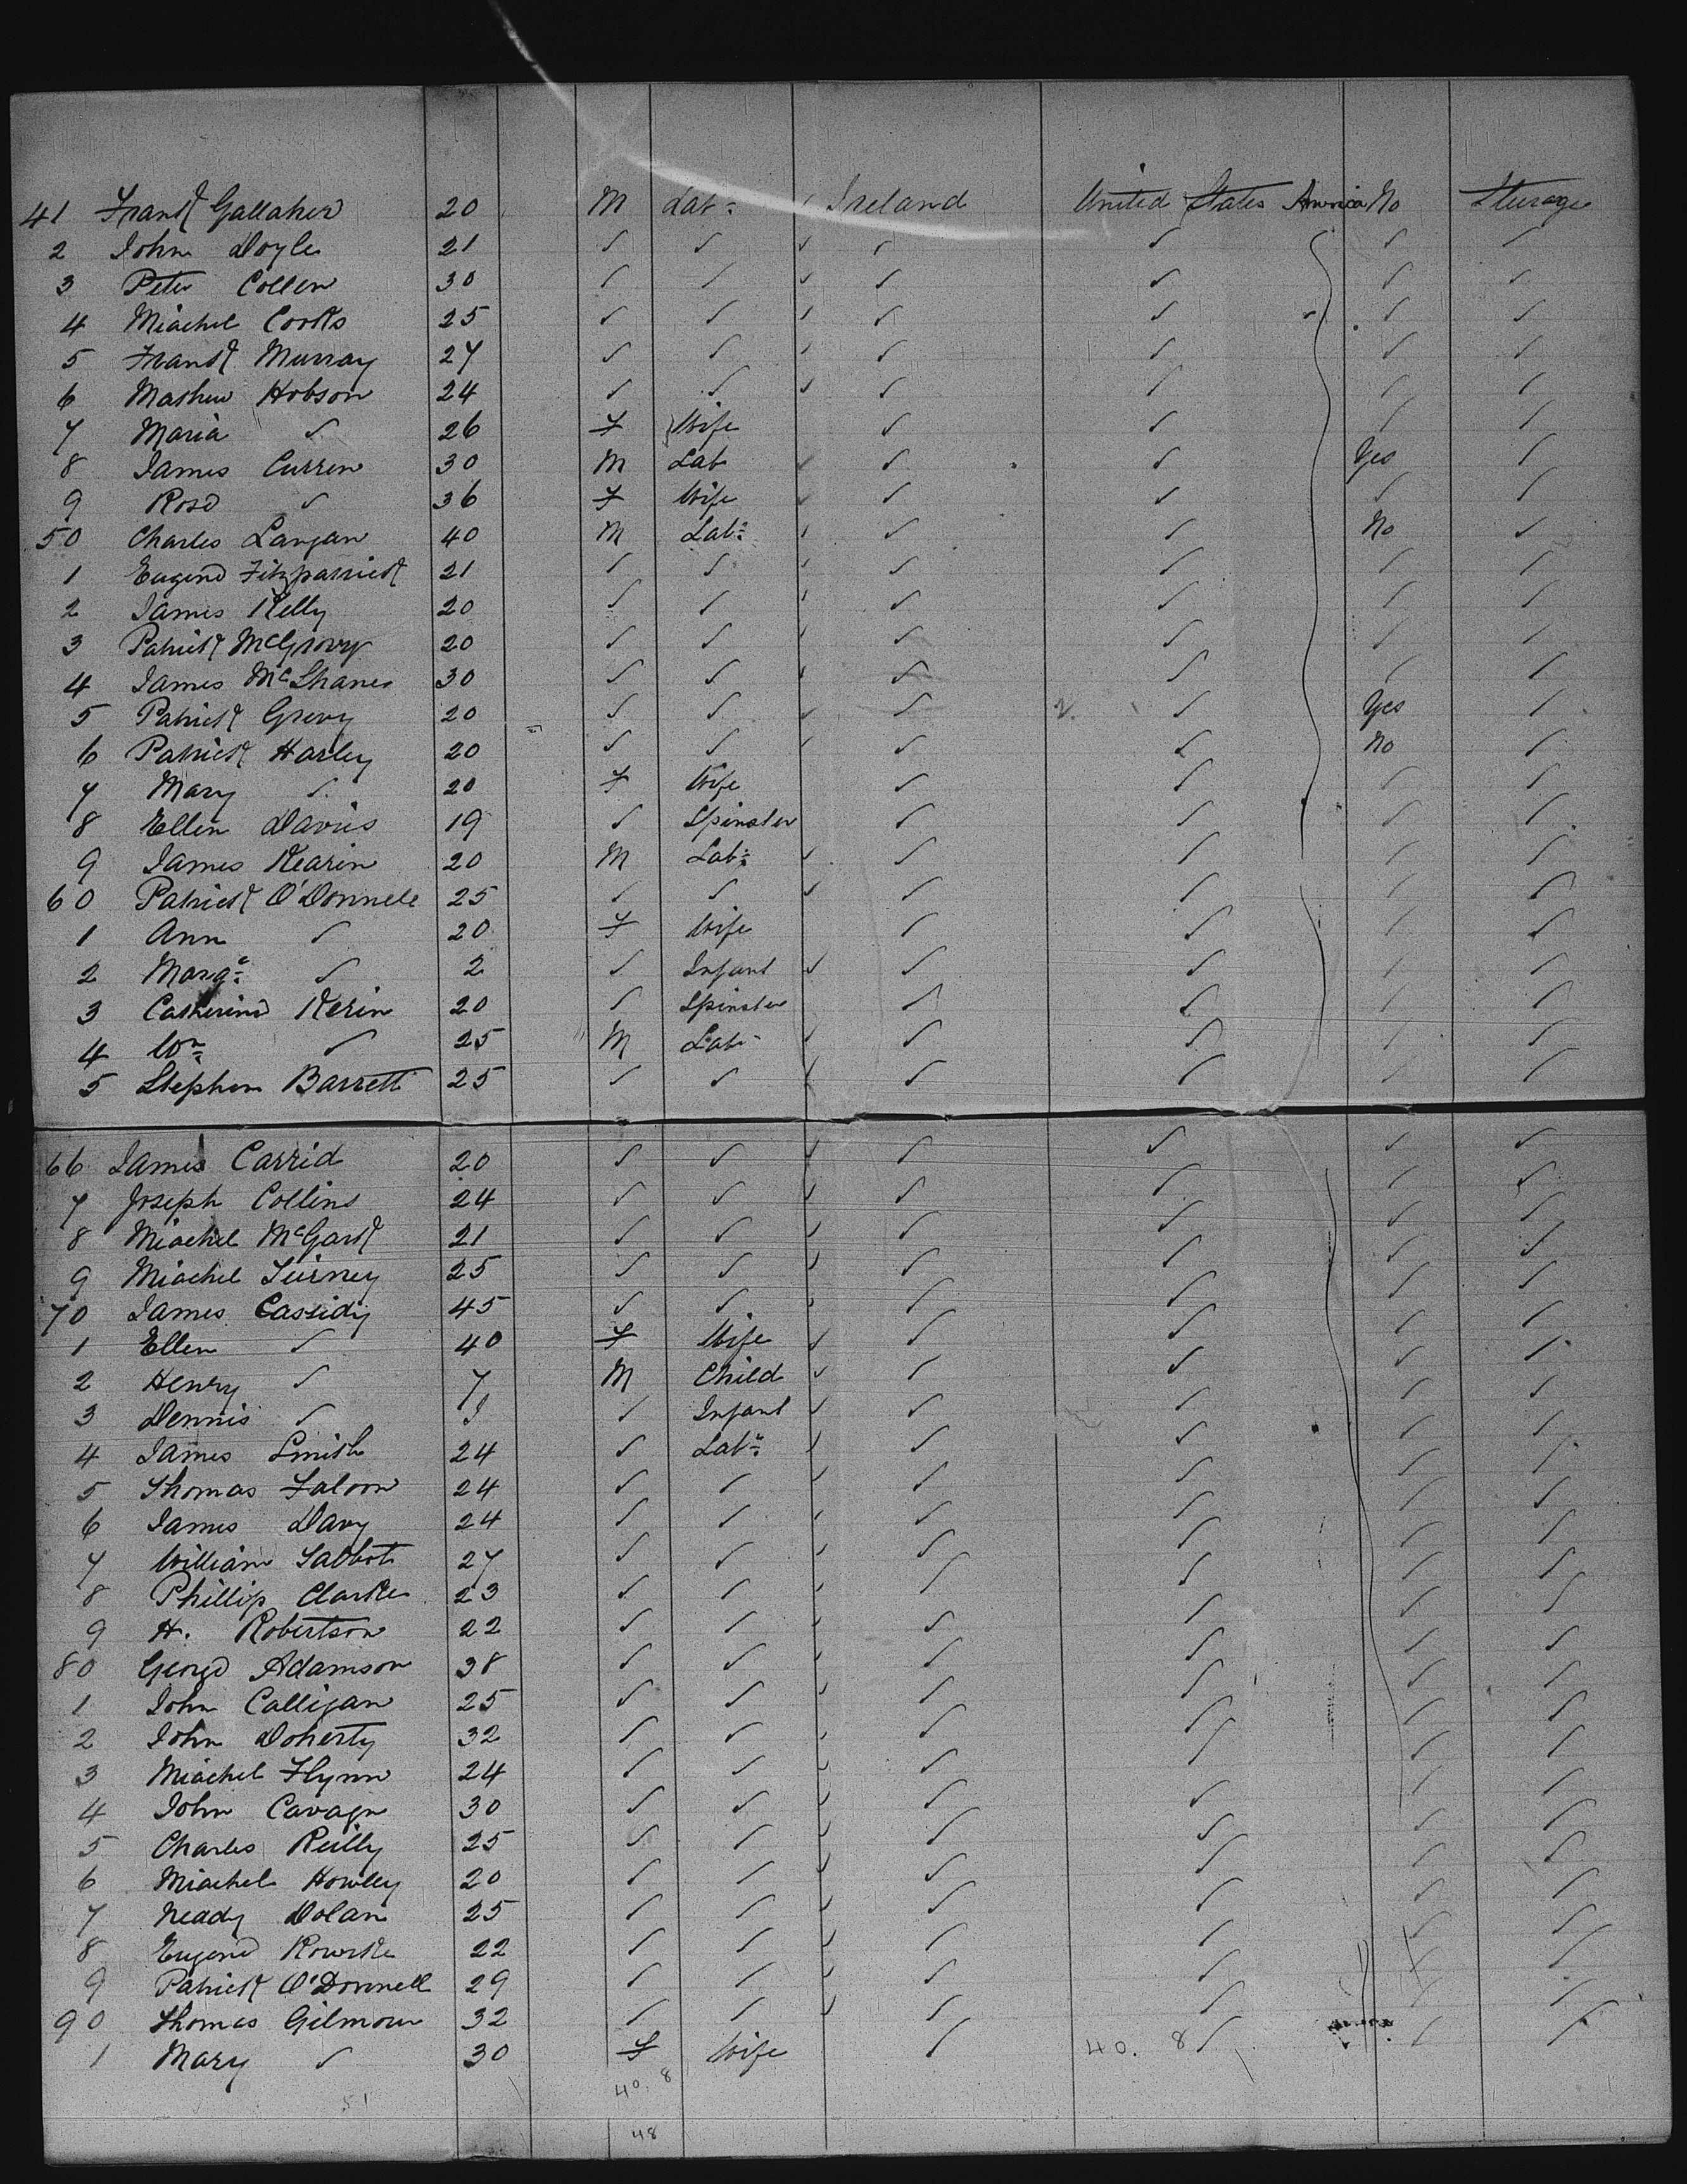 41 Frank Gallaher 20 M Lab: ✓ Ireland United States America No Steerage
2 John Doyle 21 ✓ ✓ ✓ ✓ ✓ ✓ ✓
3 Peter Collen 30 ✓ ✓ ✓ ✓ ✓ ✓ ✓
4 Miachel Cooks 25 ✓ ✓ ✓ ✓ ✓ ✓ ✓
5 Frank Murray 27 ✓ ✓ ✓ ✓ ✓ ✓ ✓
6 Mathew Hobson 24 ✓ ✓ ✓ ✓ ✓ ✓ ✓
7 Maria ✓ 26 F Wife ✓ ✓ ✓ ✓
8 James Curren 30 M Lab ✓ ✓ ✓ Yes ✓
9 Rose ✓ 36 F Wife ✓ ✓ ✓ ✓ ✓
50 Charles Langan 40 M Lab: ✓ ✓ ✓ No ✓
1 Eugene Fitzpatrick 21 ✓ ✓ ✓ ✓ ✓ ✓ ✓
2 James Kelly 20 ✓ ✓ ✓ ✓ ✓ ✓ ✓
3 Patrick McGrovy 20 ✓ ✓ ✓ ✓ ✓ ✓ ✓
4 James McShane 30 ✓ ✓ ✓ ✓ ✓ ✓ ✓
5 Patrick Grevy 20 ✓ ✓ ✓ ✓ ✓ Yes ✓
6 Patrick Harley 20 ✓ ✓ ✓ ✓ ✓ No ✓
7 Mary ✓ 20 F Wife ✓ ✓ ✓ ✓
8 Ellen Davis 19 ✓ Spinster ✓ ✓ ✓ ✓
9 James Kearin 20 M Lab: ✓ ✓ ✓ ✓ ✓
60 Patrick O'Donnell 25 ✓ ✓ ✓ ✓ ✓ ✓ ✓
1 Ann ✓ 20 F Wife ✓ ✓ ✓ ✓
2 Marg: ✓ 2 ✓ Infant ✓ ✓ ✓ ✓ ✓
3 Catherine Kerin 20 ✓ Spinster ✓ ✓ ✓ ✓
4 Wm ✓ 25 M Lab ✓ ✓ ✓ ✓ ✓
5 Stephen Barrett 25 ✓ ✓ ✓ ✓ ✓ ✓ ✓
66 James Carrid 20 ✓ ✓ ✓ ✓ ✓ ✓ ✓
7 Joseph Collins 24 ✓ ✓ ✓ ✓ ✓ ✓ ✓
8 Miachel McGark 21 ✓ ✓ ✓ ✓ ✓ ✓ ✓
9 Miachel Tierney 25 ✓ ✓ ✓ ✓ ✓ ✓ ✓
70 James Cassidy 45 ✓ ✓ ✓ ✓ ✓ ✓ ✓
1 Ellen ✓ 40 F Wife ✓ ✓ ✓ ✓ ✓
2 Henry ✓ 7 M Child ✓ ✓ ✓ ✓ ✓
3 Dennis ✓ ✓ Infant ✓ ✓ ✓ ✓ ✓
4 James Smith 24 ✓ Lab: ✓ ✓ ✓ ✓ ✓
5 Thomas Faloon 24 ✓ ✓ ✓ ✓ ✓ ✓ ✓
6 James Davy 24 ✓ ✓ ✓ ✓ ✓ ✓ ✓
7 William Talbot 27 ✓ ✓ ✓ ✓ ✓ ✓ ✓
8 Phillip Clarke 23 ✓ ✓ ✓ ✓ ✓ ✓ ✓
9 H. Robertson 22 ✓ ✓ ✓ ✓ ✓ ✓ ✓
80 George Adamson 38 ✓ ✓ ✓ ✓ ✓ ✓ ✓
1 John Calligan 25 ✓ ✓ ✓ ✓ ✓ ✓ ✓
2 John Doherty 32 ✓ ✓ ✓ ✓ ✓ ✓ ✓
3 Miachel Flynn 24 ✓ ✓ ✓ ✓ ✓ ✓ ✓
4 John Cavagn 30 ✓ ✓ ✓ ✓ ✓ ✓ ✓
5 Charles Reilly 25 ✓ ✓ ✓ ✓ ✓ ✓ ✓
6 Miachel Howley 20 ✓ ✓ ✓ ✓ ✓ ✓ ✓
7 Neady Dolan 25 ✓ ✓ ✓ ✓ ✓ ✓ ✓
8 Eugene Rourke 22 ✓ ✓ ✓ ✓ ✓ ✓ ✓
9 Patrick O'Donnell 29 ✓ ✓ ✓ ✓ ✓ ✓ ✓
90 Thomas Gilmour 32 ✓ ✓ ✓ ✓ ✓ ✓ ✓
1 Mary ✓ 30 F Wife ✓ 40. 8 ✓ ✓ ✓
40. 8
51
48